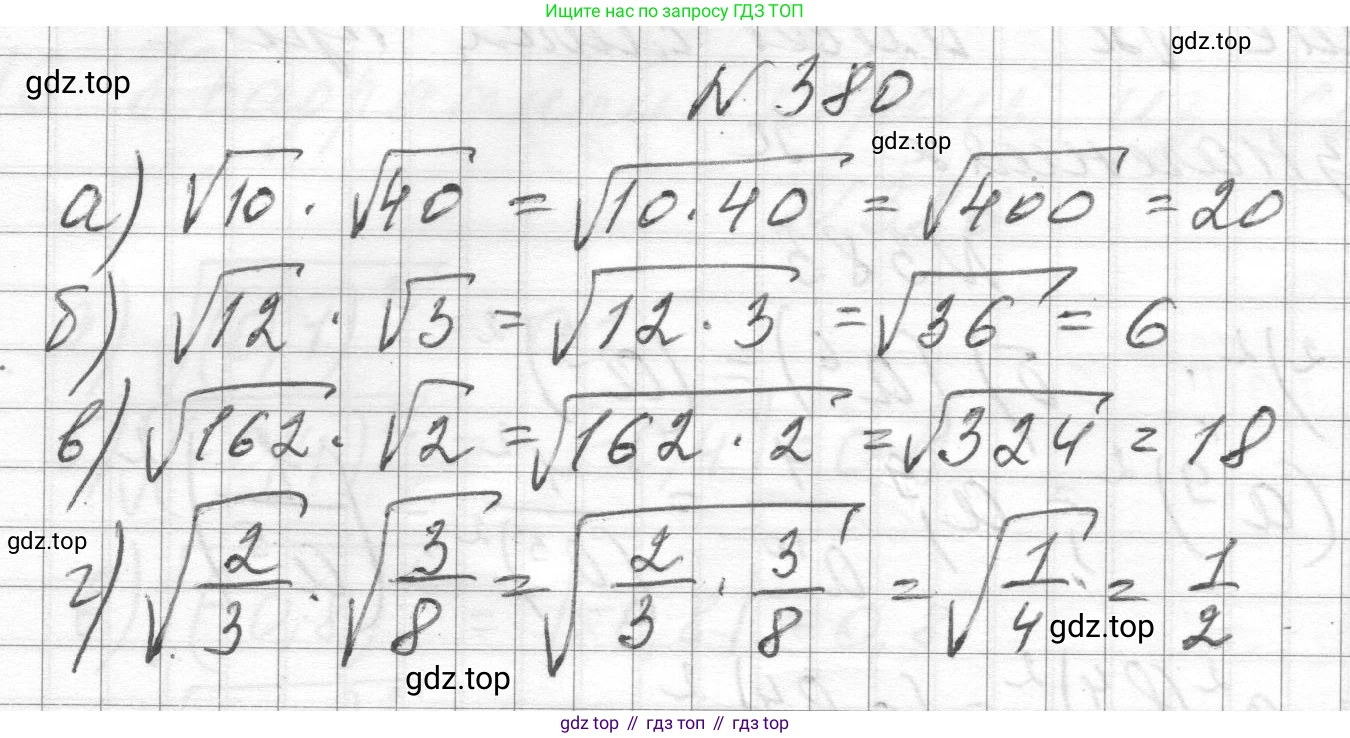 Ищите нас по запросу ГДЗ ТОП
gdz.top
gdz.top
N 380
gdz.top
а) √10 · √40 = √10·40 = √400 = 20
б) √12 · √3 = √12·3 = √36 = 6
в) √162 · √2 = √162·2 = √324 = 18
gdz.top
г) √2/3 · √3/8 = √2/3 · 3/8 = √1/4 = 1/2
gdz.top
gdz.top
gdz top // гдз топ // гдз top